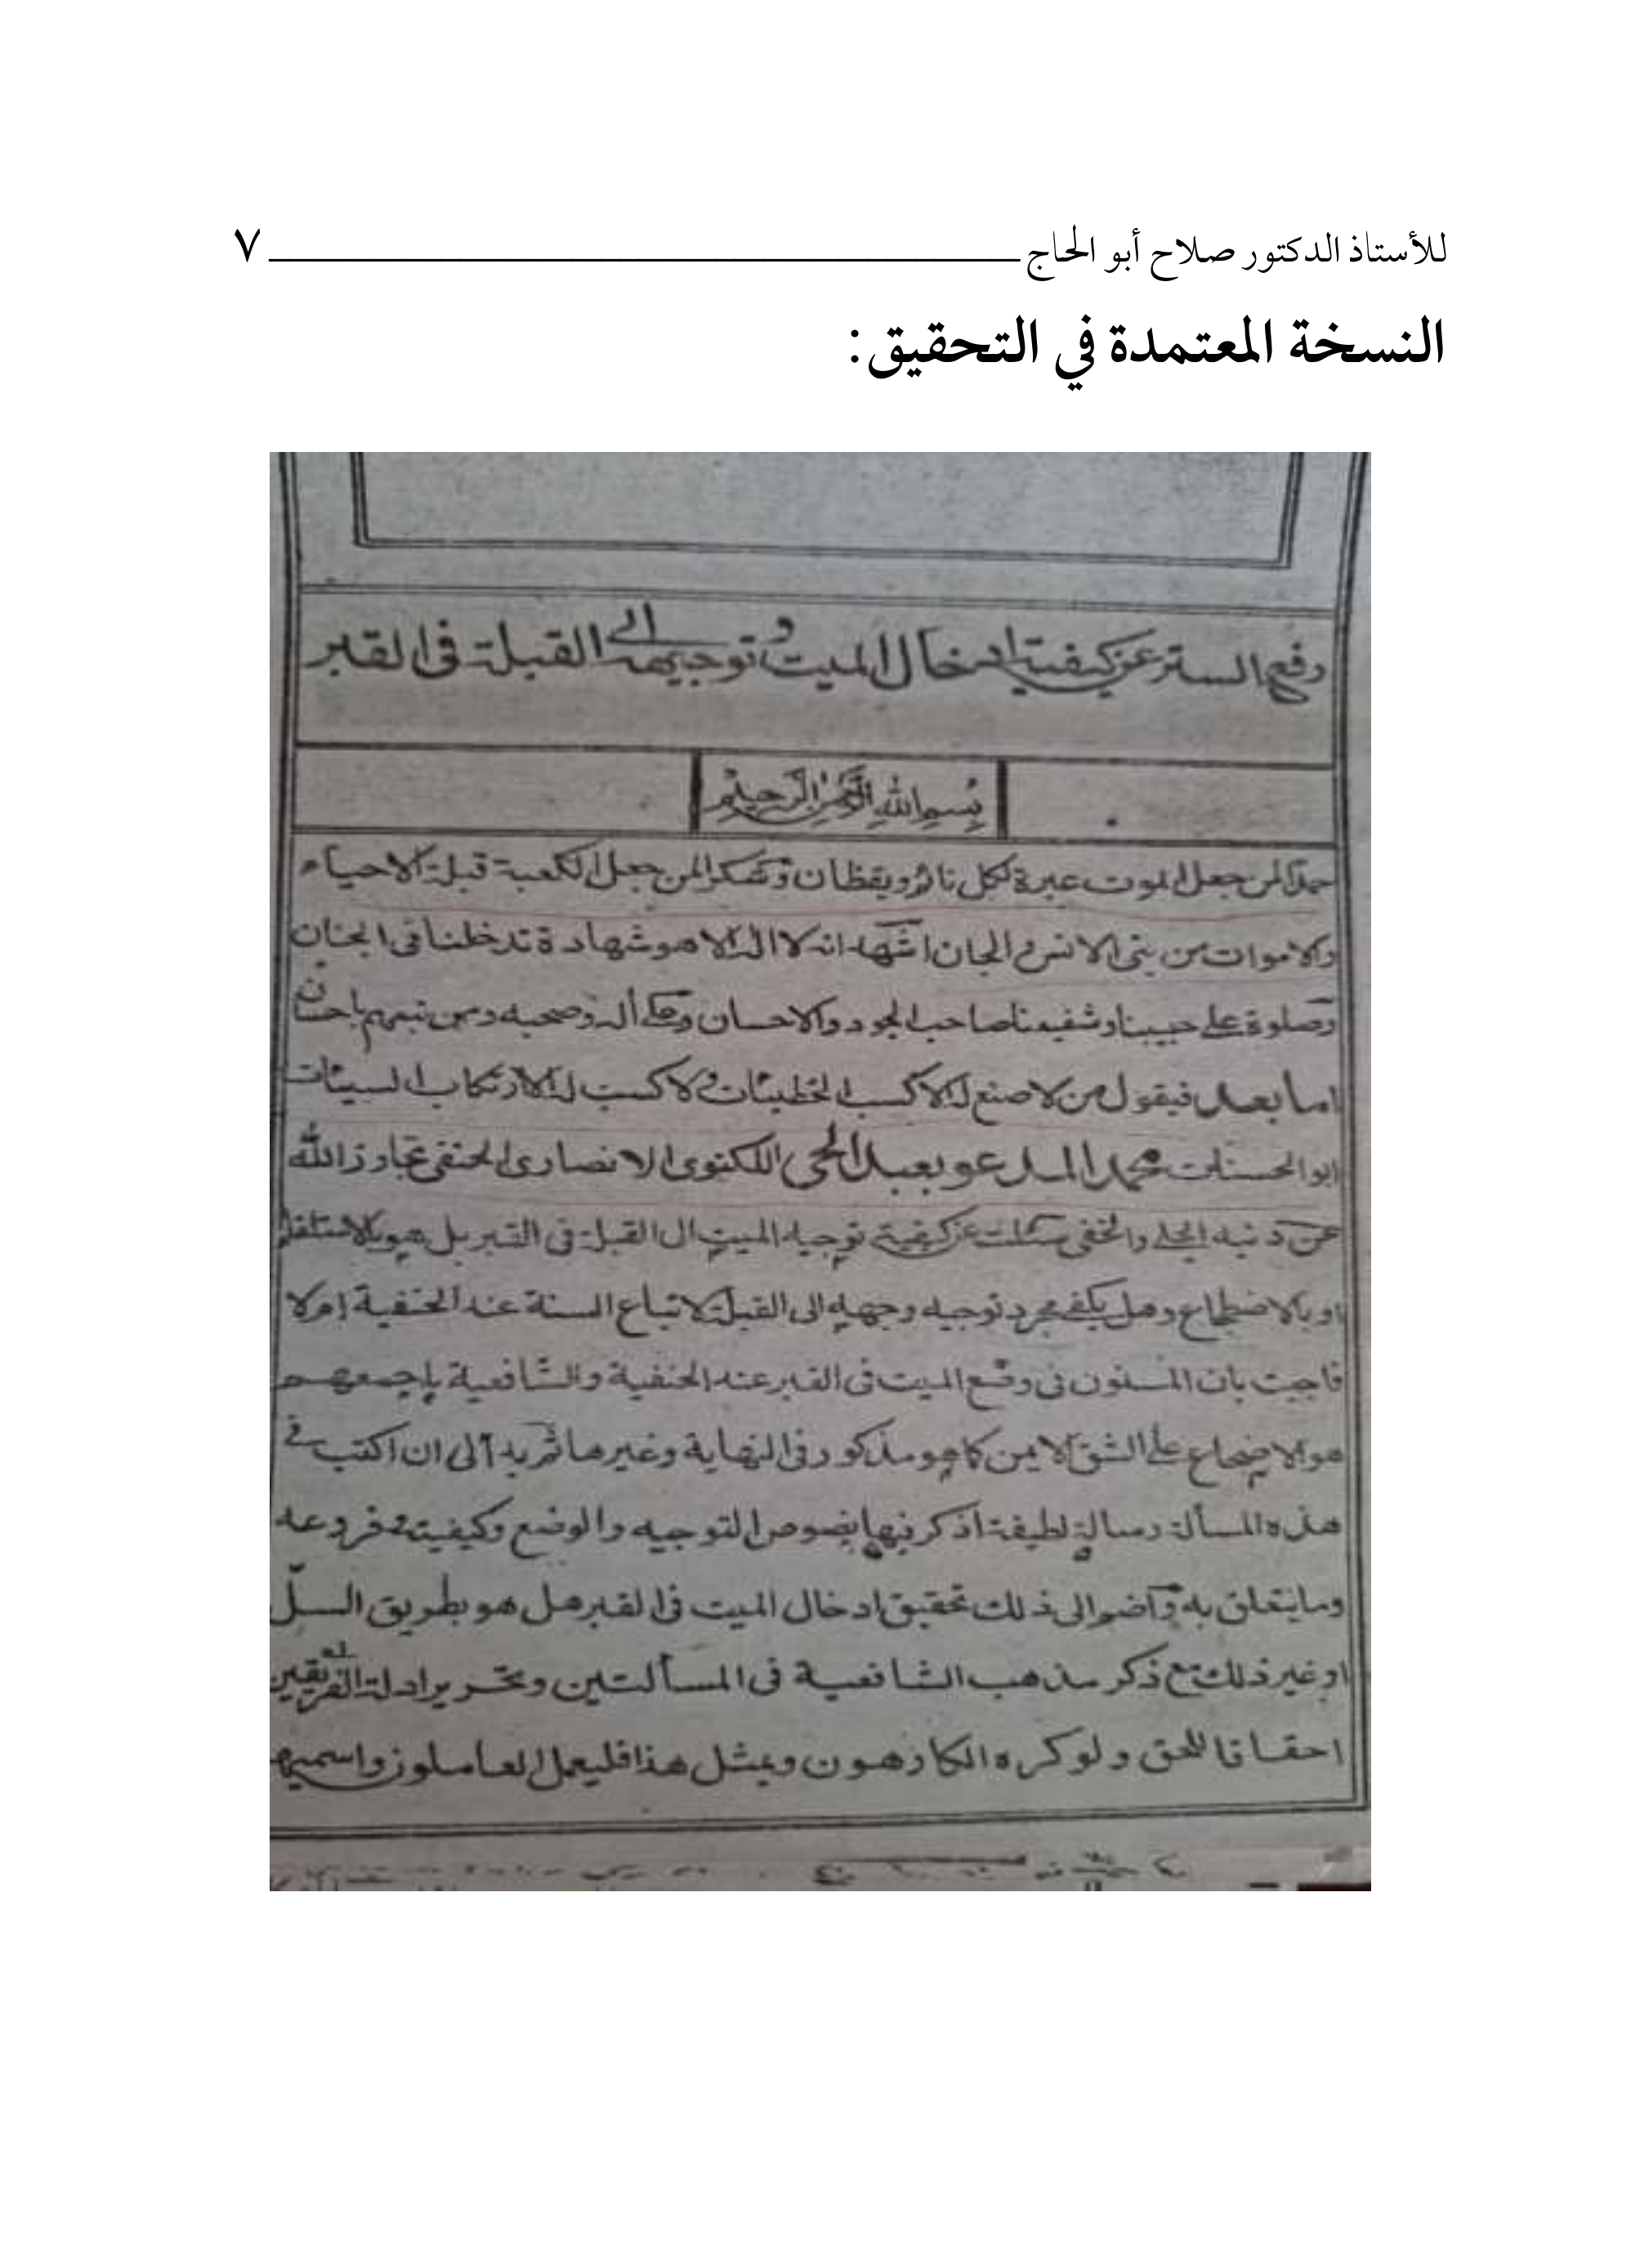 للأستاذ الدكتور صلاح أبو الحاج ٧
النسخة المعتمدة في التحقيق:
رفع الستر عن كيفية ادخال الميت و توجيهه الى القبلة فى القبر
بسم الله الرحمن الرحيم
حمدا لمن جعل الموت عبرة لكل نائم ويقظان وشكرا لمن جعل الكعبة قبلة الاحياء
والاموات من بنى الانس والجان اشهد انه لا اله الا هو شهادة تدخلنا فى الجنان
وصلوة على حبيبنا وشفيعنا صاحب الجود والاحسان وعلى أله وصحبه ومن تبعهم باحسان
اما بعد فيقول من لا صنع له الا كسب الخطيئات ولا كسب له الا ارتكاب السيئات
ابو الحسنات محمد المدعو بعبد الحى اللكنوى الانصارى الحنفى تجاوز الله
عن ذنبه الجلى والخفى سئلت عن كيفية توجيه الميت ال القبلة فى القبر بل هو بالاستلقاء
او بالاضطجاع وهل يكفى مجرد توجيه وجهه الى القبلة لاتباع السنة عند الحنفية ام لا
فاجبت بان المسنون فى وضع الميت فى القبر عند الحنفية والشافعية باجمعهم
هو الاضجاع على الشق الايمن كما هو مذكور فى النهاية وغيرها ثم بدألى ان اكتب فى
هذه المسألة رسالة لطيفة اذكر فيها نصوص التوجيه والوضع وكيفيته وفروعه
وما يتعلق به واضم الى ذلك تحقيق ادخال الميت فى القبر هل هو بطريق السلّ
او غير ذلك مع ذكر مذهب الشافعية فى المسألتين وتحرير ادلة الفريقين
احقاقا للحق ولو كره الكارهون وبمثل هذا فليعمل العاملون واسميها